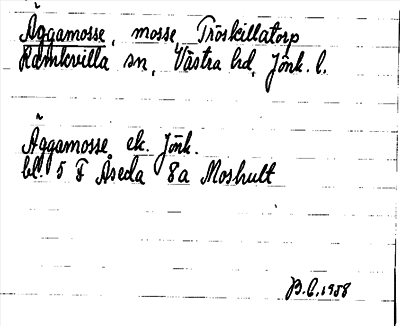 Äggamosse, mosse Tröskillatorp
Ramkvilla sn, Västra hd, Jönk. l.
Äggamosse ek. Jönk.
bl 5 F Åseda 8a Moshult
B.C. 1958